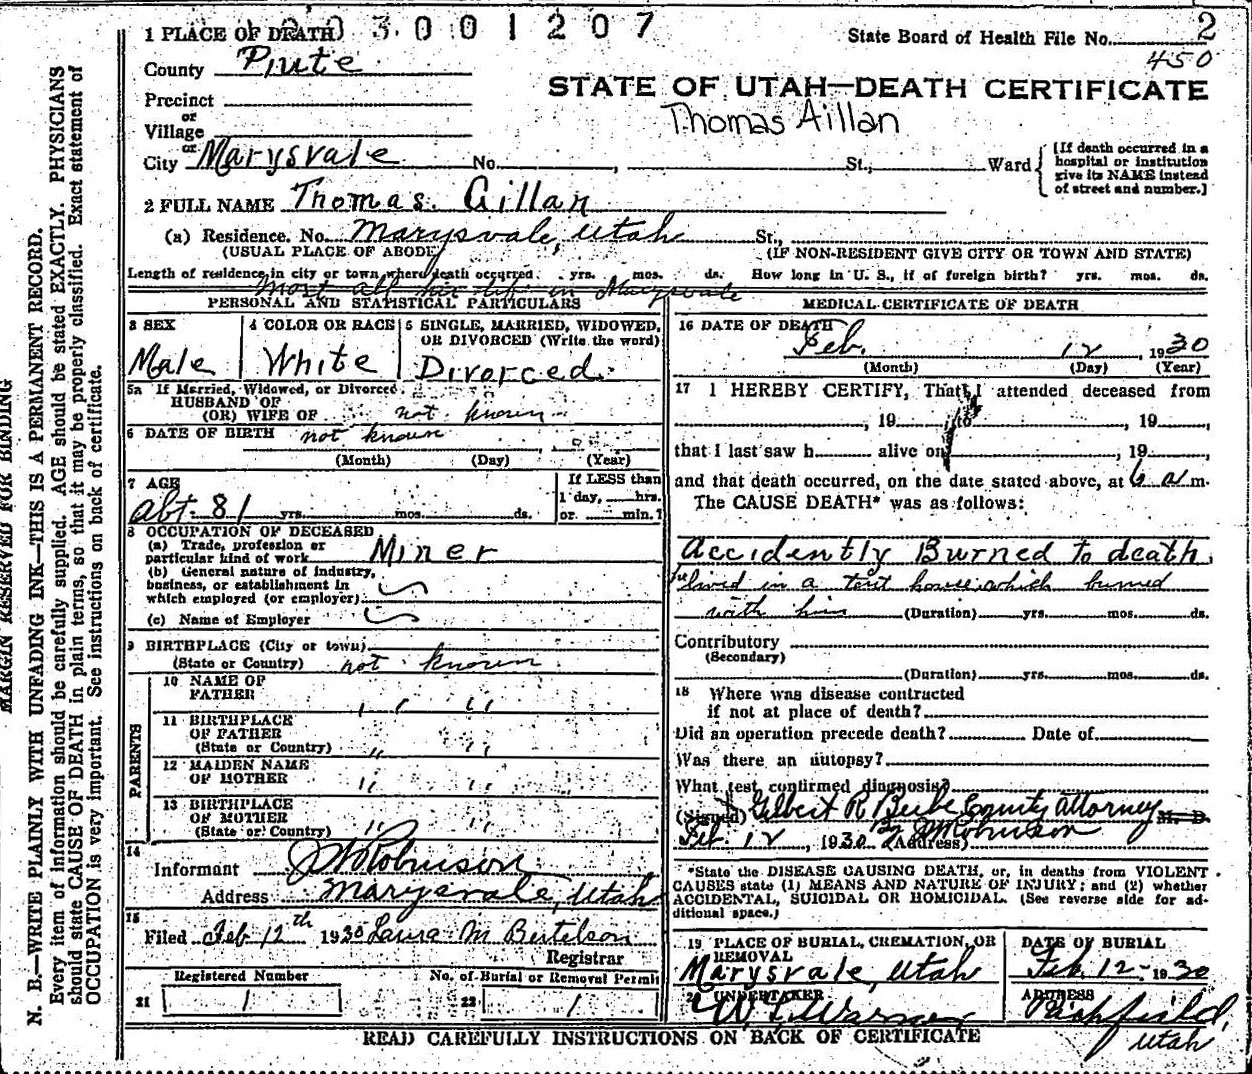 3 0 0 1 2 0 7
1 PLACE OF DEATH
State Board of Health File No. 2
450
County Piute
STATE OF UTAH—DEATH CERTIFICATE
Precinct
or
Thomas Aillan
Village
or
City Marysvale No. , St., Ward
[If death occurred in a
hospital or institution
give its NAME instead
of street and number.]
2 FULL NAME Thomas. Gillan
(a) Residence. No. Marysvale, Utah St.,
(USUAL PLACE OF ABODE) (IF NON-RESIDENT GIVE CITY OR TOWN AND STATE)
Length of residence in city or town where death occurred. yrs. mos. ds. How long in U. S., if of foreign birth? yrs. mos. ds.
Most all his life in Marysvale
PERSONAL AND STATISTICAL PARTICULARS
3 SEX
Male
4 COLOR OR RACE
White
5 SINGLE, MARRIED, WIDOWED,
OR DIVORCED (Write the word)
Divorced.
5a If Married, Widowed, or Divorced
HUSBAND OF
(OR) WIFE OF not known
6 DATE OF BIRTH not known
(Month) (Day) (Year)
7 AGE
abt 81 yrs. mos. ds.
If LESS than
1 day, hrs.
or min.?
8 OCCUPATION OF DECEASED
(a) Trade, profession or
particular kind of work Miner
(b) General nature of industry,
business, or establishment in
which employed (or employer)
(c) Name of Employer
9 BIRTHPLACE (City or town)
(State or Country) not known
PARENTS
10 NAME OF
FATHER " "
11 BIRTHPLACE
OF FATHER
(State or Country) " "
12 MAIDEN NAME
OF MOTHER " "
13 BIRTHPLACE
OF MOTHER
(State or Country) " "
14
Informant J W Robinson
Address Marysvale, Utah
15
Filed Feb 12th 1930 Laura M Bertelson
Registrar
Registered Number
21 1
No. of Burial or Removal Permit
22 1
MEDICAL CERTIFICATE OF DEATH
16 DATE OF DEATH
Feb. 12, 1930
(Month) (Day) (Year)
17 I HEREBY CERTIFY, That I attended deceased from
, 19 to , 19 ,
that I last saw h alive on , 19 ,
and that death occurred, on the date stated above, at 6 a m.
The CAUSE DEATH* was as follows:
Accidently Burned to death.
he lived in a tent house which burned
with him (Duration) yrs. mos. ds.
Contributory
(Secondary)
(Duration) yrs. mos. ds.
18 Where was disease contracted
if not at place of death?
Did an operation precede death? Date of
Was there an autopsy?
What test confirmed diagnosis?
(Signed) Gilbert R Beebe County Attorney M. D.
Feb. 12, 1930 By J W Robinson (Address)
*State the DISEASE CAUSING DEATH, or, in deaths from VIOLENT
CAUSES state (1) MEANS AND NATURE OF INJURY; and (2) whether
ACCIDENTAL, SUICIDAL OR HOMICIDAL. (See reverse side for ad-
ditional space.)
19 PLACE OF BURIAL, CREMATION, OR
REMOVAL
Marysvale, Utah
DATE OF BURIAL
Feb. 12 1930
20 UNDERTAKER
ADDRESS
Richfield,
Utah
READ CAREFULLY INSTRUCTIONS ON BACK OF CERTIFICATE
MARGIN RESERVED FOR BINDING
N. B.—WRITE PLAINLY WITH UNFADING INK—THIS IS A PERMANENT RECORD.
Every item of information should be carefully supplied. AGE should be stated EXACTLY. PHYSICIANS
should state CAUSE OF DEATH in plain terms, so that it may be properly classified. Exact statement of
OCCUPATION is very important. See instructions on back of certificate.